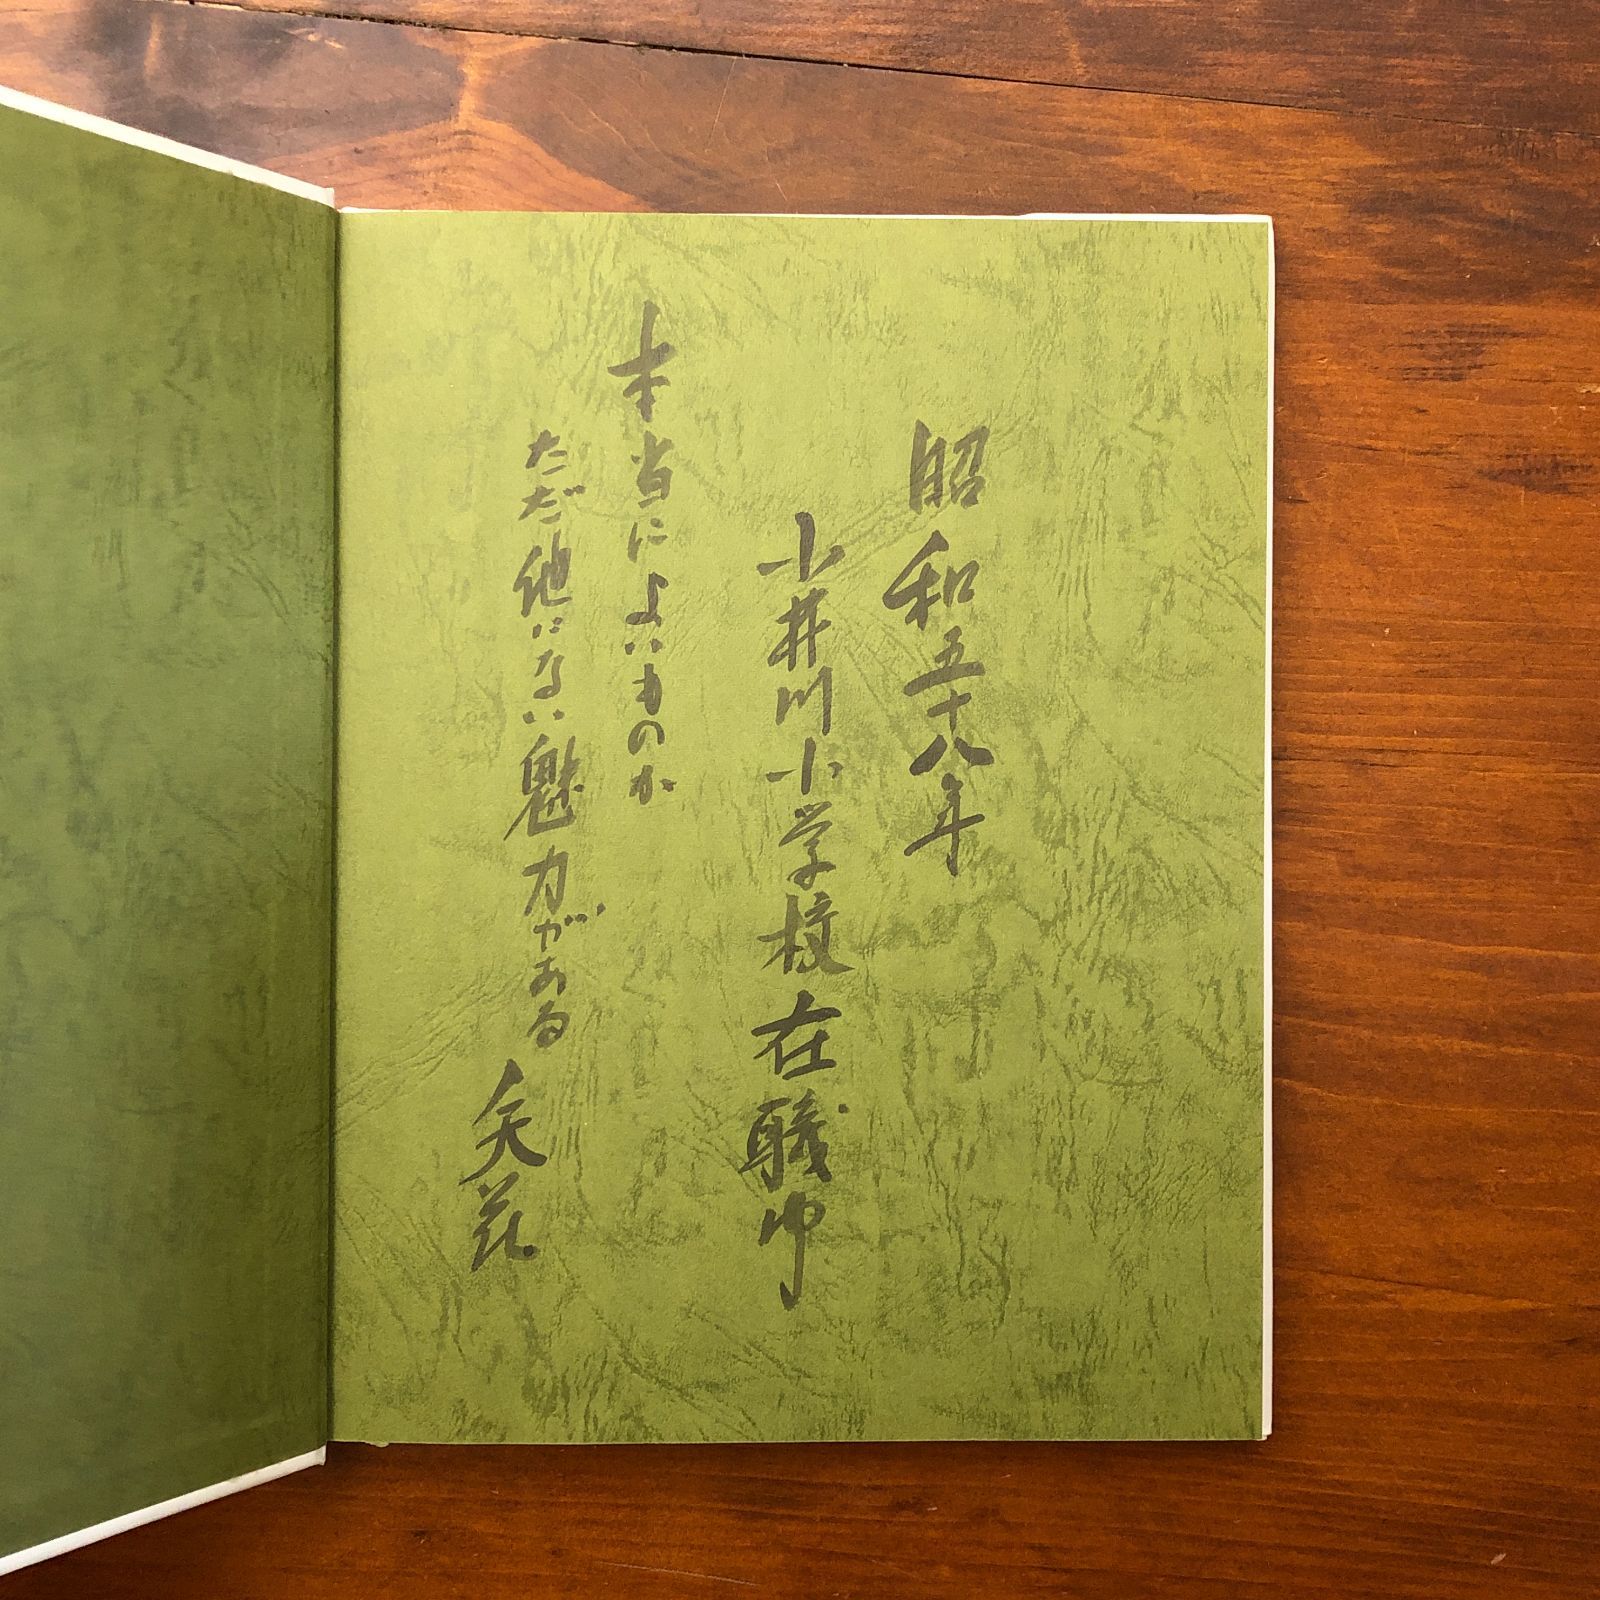 昭和五十八年
小井川小学校在職中
本当によいものか
ただ他にない魅力がある
矢花